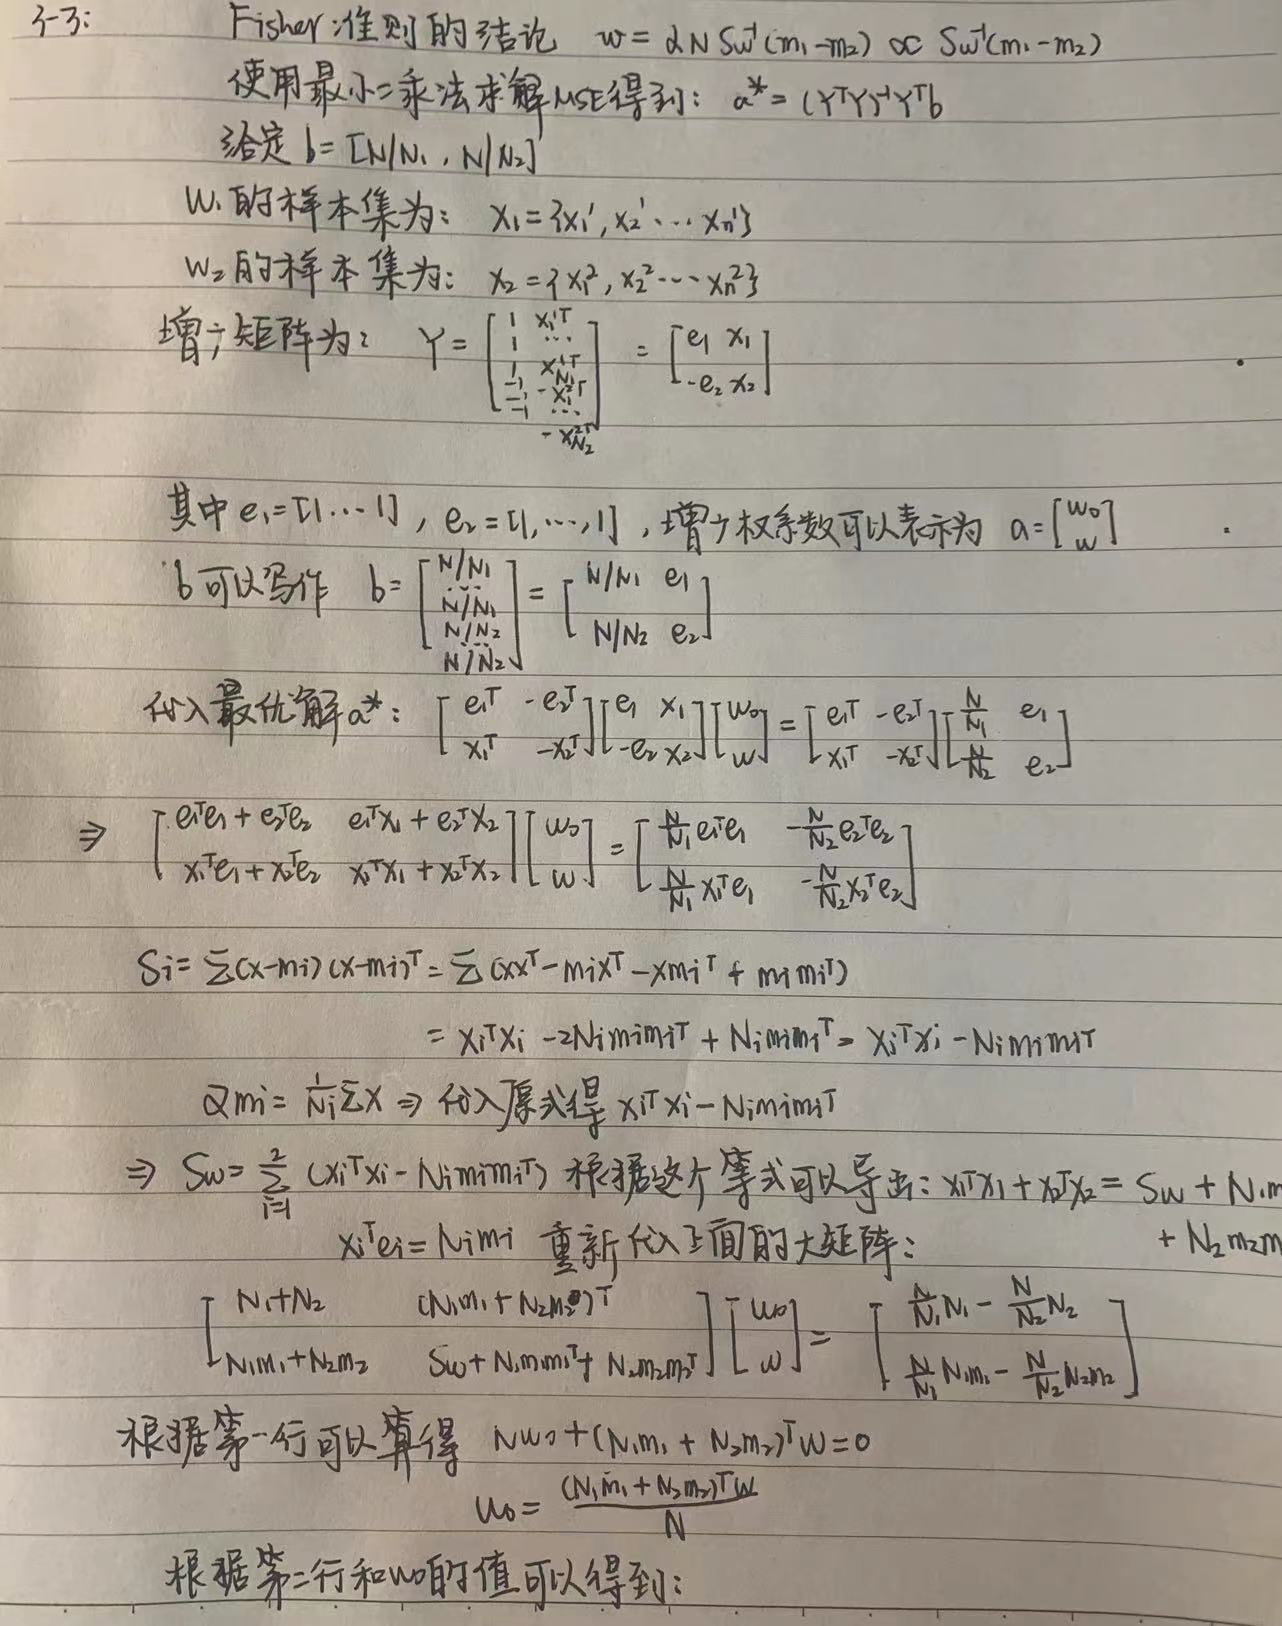 3-3: Fisher准则的结论 w = αN Sw⁻¹(m₁-m₂) ∝ Sw⁻¹(m₁-m₂)
使用最小二乘法求解MSE得到: a* = (YᵀY)⁻¹Yᵀb
给定 b = [N/N₁, N/N₂]
W₁的样本集为: X₁ = {x₁¹, x₂¹ ⋯ xn¹}
W₂的样本集为: X₂ = {x₁², x₂² ⋯ xn²}
增广矩阵为: Y = [1 x₁¹ᵀ; 1 ⋯; 1 x_N₁¹ᵀ; -1 -x₁²ᵀ; -1 ⋯; -x_N₂²ᵀ] = [e₁ x₁; -e₂ x₂]
其中 e₁=[1⋯1], e₂=[1,⋯,1], 增广权系数可以表示为 a=[w₀; w]
b可以写作 b = [N/N₁; ⋯; N/N₁; N/N₂; ⋯; N/N₂] = [N/N₁ e₁; N/N₂ e₂]
代入最优解a*: [e₁ᵀ -e₂ᵀ; x₁ᵀ -x₂ᵀ][e₁ x₁; -e₂ x₂][w₀; w] = [e₁ᵀ -e₂ᵀ; x₁ᵀ -x₂ᵀ][N/N₁ e₁; N/N₂ e₂]
⇒ [e₁ᵀe₁+e₂ᵀe₂ e₁ᵀx₁+e₂ᵀx₂; x₁ᵀe₁+x₂ᵀe₂ x₁ᵀx₁+x₂ᵀx₂][w₀; w] = [N/N₁ e₁ᵀe₁ -N/N₂ e₂ᵀe₂; N/N₁ x₁ᵀe₁ -N/N₂ x₂ᵀe₂]
Si = Σ(x-mi)(x-mi)ᵀ = Σ(xxᵀ-mixᵀ-xmiᵀ+mimiᵀ)
= xiᵀxi - 2Nimimiᵀ + Nimimiᵀ = xiᵀxi - Nimimiᵀ
又mi = 1/Ni Σx ⇒ 代入原式得 xiᵀxi - Nimimiᵀ
⇒ Sw = Σ_{i=1}^{2} (xiᵀxi - Nimimiᵀ) 根据这个等式可以导出: x₁ᵀx₁+x₂ᵀx₂ = Sw + N₁m
+ N₂m₂m
xiᵀei = Nimi 重新代入上面的大矩阵:
[N₁+N₂ (N₁m₁+N₂m₂)ᵀ; N₁m₁+N₂m₂ Sw+N₁m₁m₁ᵀ+N₂m₂m₂ᵀ][w₀; w] = [N/N₁ N₁ - N/N₂ N₂; N/N₁ N₁m₁ - N/N₂ N₂m₂]
根据第一行可以算得 Nw₀+(N₁m₁+N₂m₂)ᵀw=0
w₀ = (N₁m₁+N₂m₂)ᵀw / N
根据第二行和w₀的值可以得到: